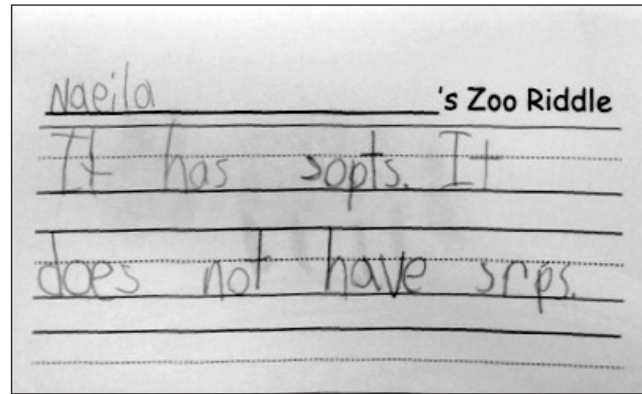 Naeila's Zoo Riddle
It has sopts. It
does not have srps.